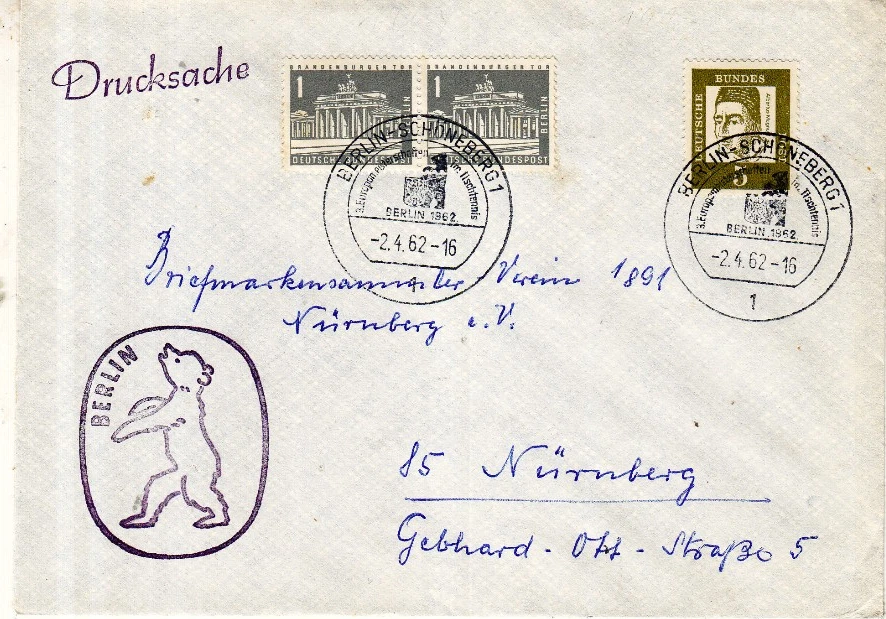 Drucksache
BRANDENBURGER TOR
1
BERLIN
DEUTSCHE BUNDESPOST
BRANDENBURGER TOR
1
BERLIN
DEUTSCHE BUNDESPOST
DEUTSCHE
BUNDES
5
BERLIN-SCHÖNEBERG 1
im Tischtennis
BERLIN 1962
-2.4.62-16
BERLIN-SCHÖNEBERG 1
im Tischtennis
BERLIN 1962
-2.4.62-16
1
Briefmarkensammler-Verein 1891
Nürnberg e.V.
BERLIN
85 Nürnberg
Gebhard-Ott-Straße 5